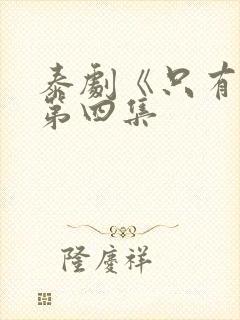 泰劇《只有
第四集
隆慶祥